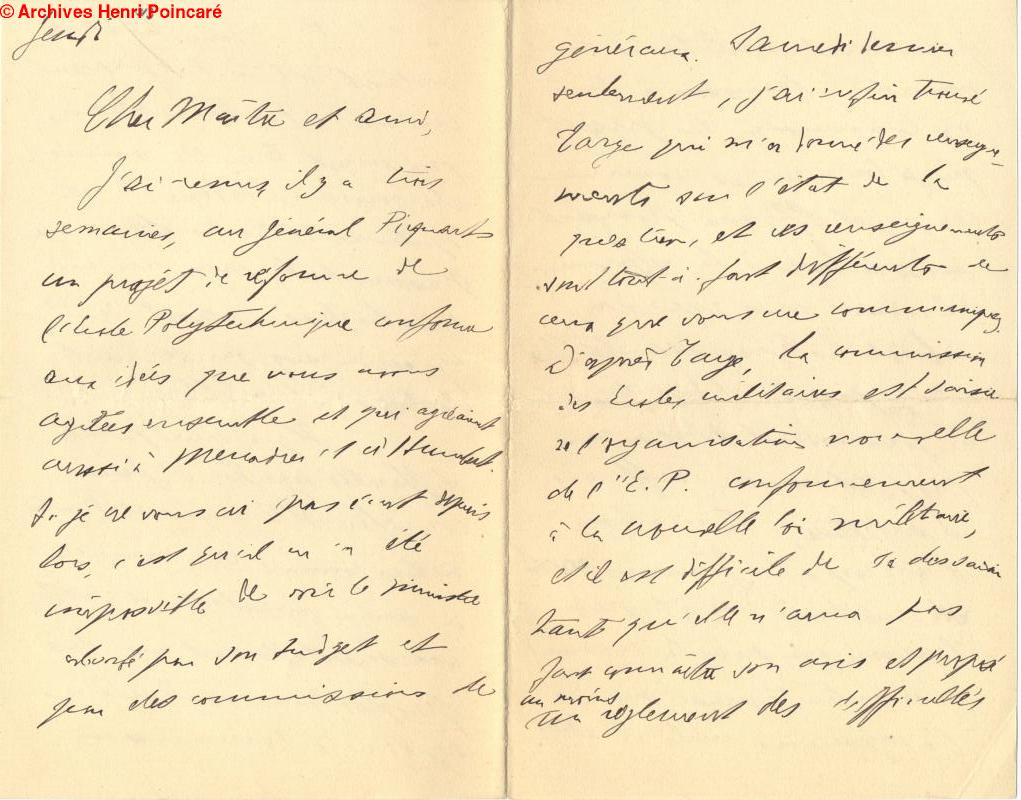 © Archives Henri Poincaré
Jeudi
Cher Maître et ami,
J'ai remis, il y a trois
semaines, au général Picquart
un projet de réforme de
l'Ecole Polytechnique conforme
aux idées que nous avons
agitées ensemble et qui agréaient
aussi à Mercadier et à Humbert.
Si je ne vous ai pas écrit depuis
lors, c'est qu'il m'a été
impossible de voir le ministre
absorbé par son budget et
par des commissions de
généraux. Samedi dernier
seulement, j'ai enfin trouvé
Targe qui m'a donné des renseigne-
ments sur l'état de la
question, et ces renseignements
sont tout-à-fait différents de
ceux que vous me communiquez.
D'après Targe, la commission
des Ecoles militaires est saisie
de l'organisation nouvelle
de l'E.P. conformément
à la nouvelle loi militaire,
et il est difficile de la dessaisir
tant qu'elle n'aura pas
fait connaître son avis et proposé
au moins
un règlement des difficultés